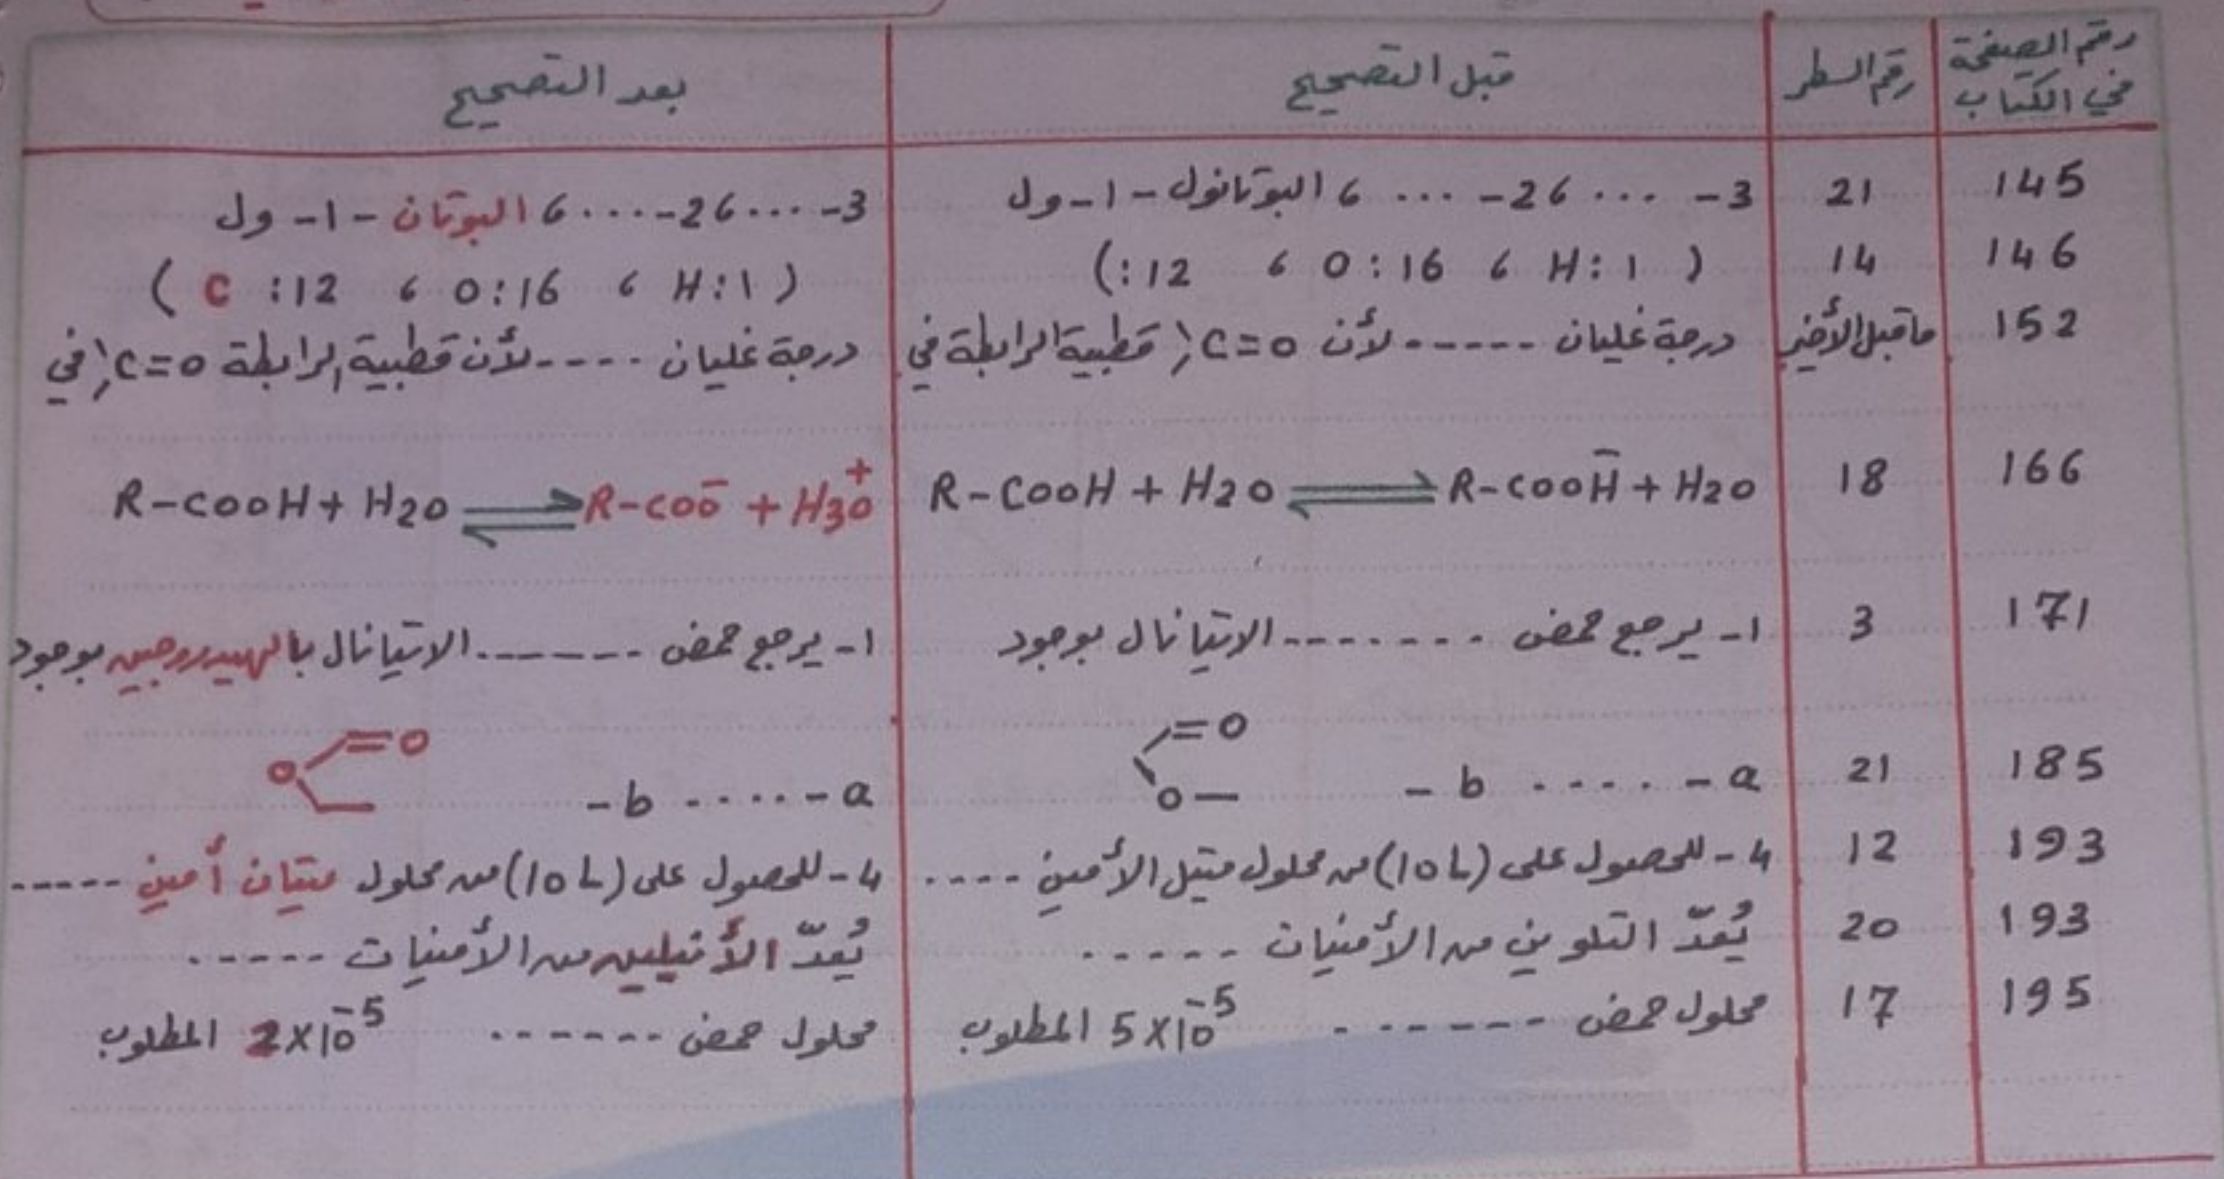 رقم الصفحة في الكتاب | رقم السطر | قبل التصحيح | بعد التصحيح
145 | 21 | 3- ... ،2- ... ، البوتانول -1- ول | 3- ... ،2- ... ، البوتان -1- ول
146 | 14 | ( H:1 ، O:16 ، :12) | ( H:1 ، O:16 ، C :12 )
152 | ماقبل الأخير | درجة غليان ----- لأن C=O قطبية الرابطة في | درجة غليان ---- لأن قطبية الرابطة C=O في
166 | 18 | R-COOH + H2O ⇌ R-COOH⁻ + H2O | R-COOH + H2O ⇌ R-COO⁻ + H3O⁺
171 | 3 | 1- يرجع حمض ------- الايتانال بوجود | 1- يرجع حمض ------ الايتانال بالهيدروجين بوجود
185 | 21 | a - ..... b - =O O— | a - ..... b - O =O
193 | 12 | 4- للحصول على (10 L) من محلول متيل الأمين ---- | 4- للحصول على (10 L) من محلول ميتان أمين -----
193 | 20 | يُعدّ التلوين من الأمنيات ----- | يُعدّ الأنيلين من الأمنيات -----
195 | 17 | محلول حمض ------ 5×10⁻⁵ المطلوب | محلول حمض ------ 2×10⁻⁵ المطلوب